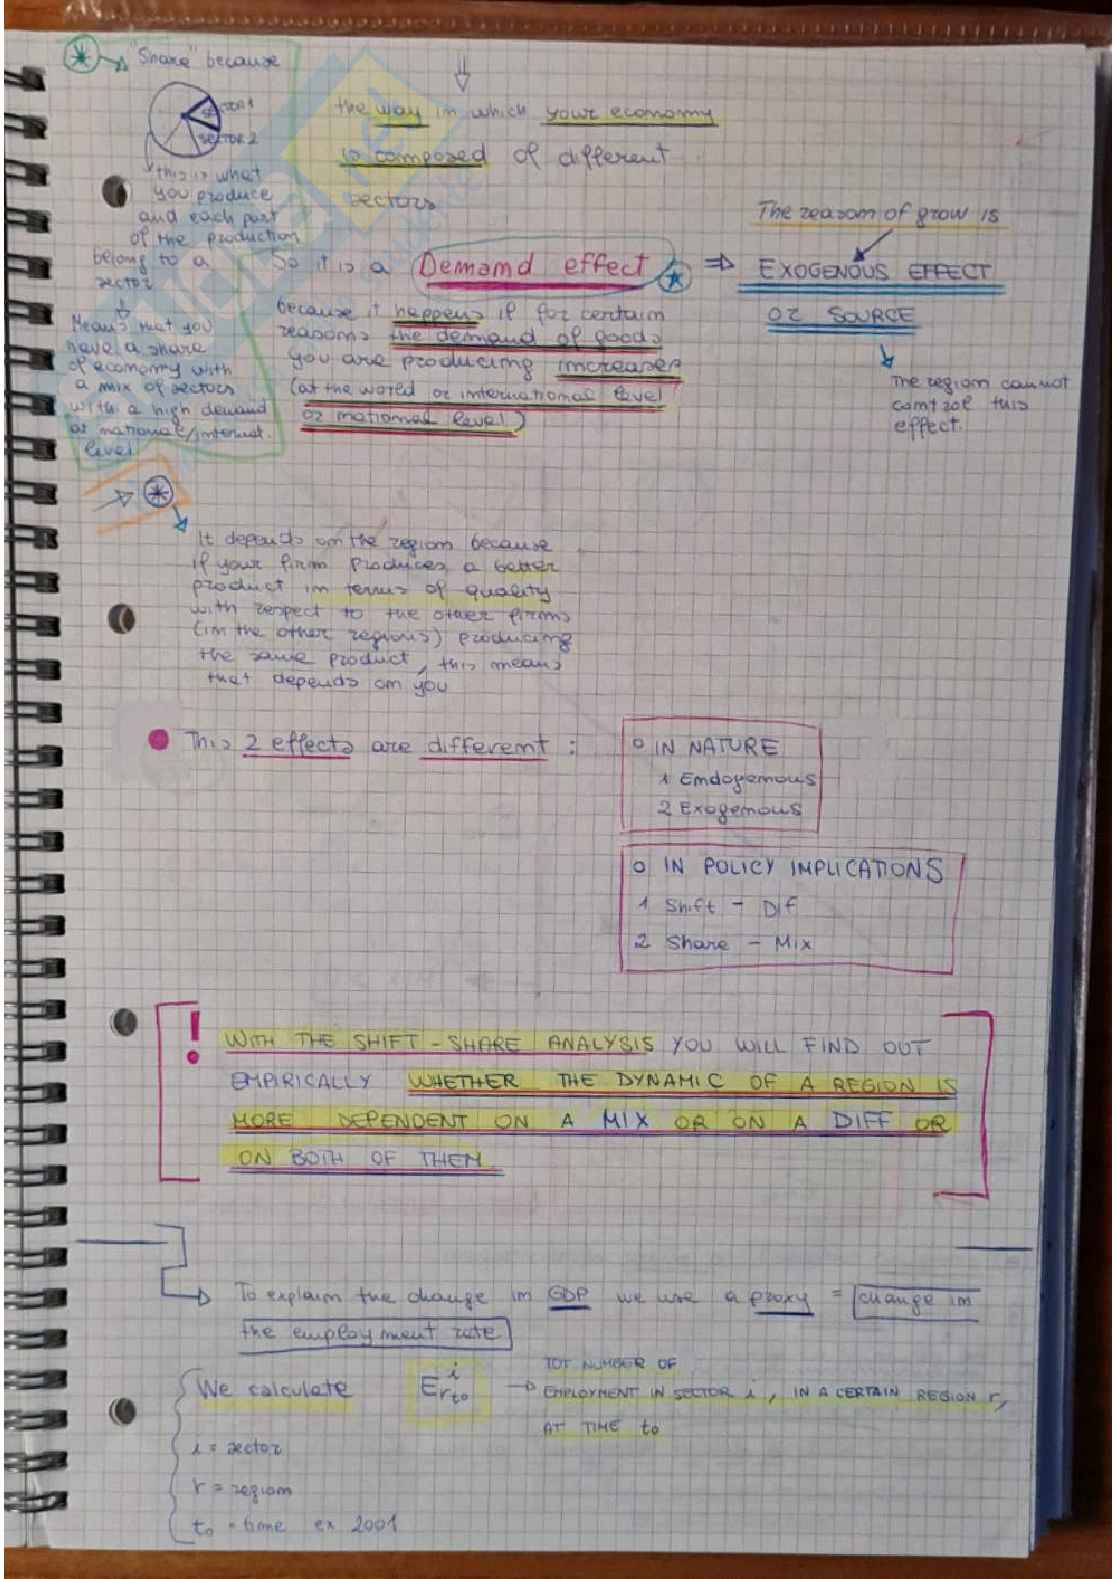 "Share" because
SECTOR 1
SECTOR 2
this is what
you produce
and each part
of the production
belong to a
sector
Means that you
have a share
of economy with
a mix of sectors
with a high demand
at national/internat.
level
the way in which your economy
is composed of different
sectors
So it is a Demand effect
because it happens if for certain
reasons the demand of goods
you are producing increases
(at the world or international level
or national level)
The reason of grow is
EXOGENOUS EFFECT
or SOURCE
The region cannot
control this
effect.
It depends on the region because
if your firm produces a better
product in terms of quality
with respect to the other firms
(in the other regions) producing
the same product, this means
that depends on you
This 2 effects are different :
IN NATURE
1 Endogenous
2 Exogenous
IN POLICY IMPLICATIONS
1 Shift - Dif
2 Share - Mix
! WITH THE SHIFT - SHARE ANALYSIS YOU WILL FIND OUT
EMPIRICALLY WHETHER THE DYNAMIC OF A REGION IS
MORE DEPENDENT ON A MIX OR ON A DIFF OR
ON BOTH OF THEM
To explain the change in GDP we use a proxy = change in
the employment rate
We calculate E i r t0 → TOT NUMBER OF
EMPLOYMENT IN SECTOR i, IN A CERTAIN REGION r,
AT TIME t0
i = sector
r = region
t0 = time ex 2001